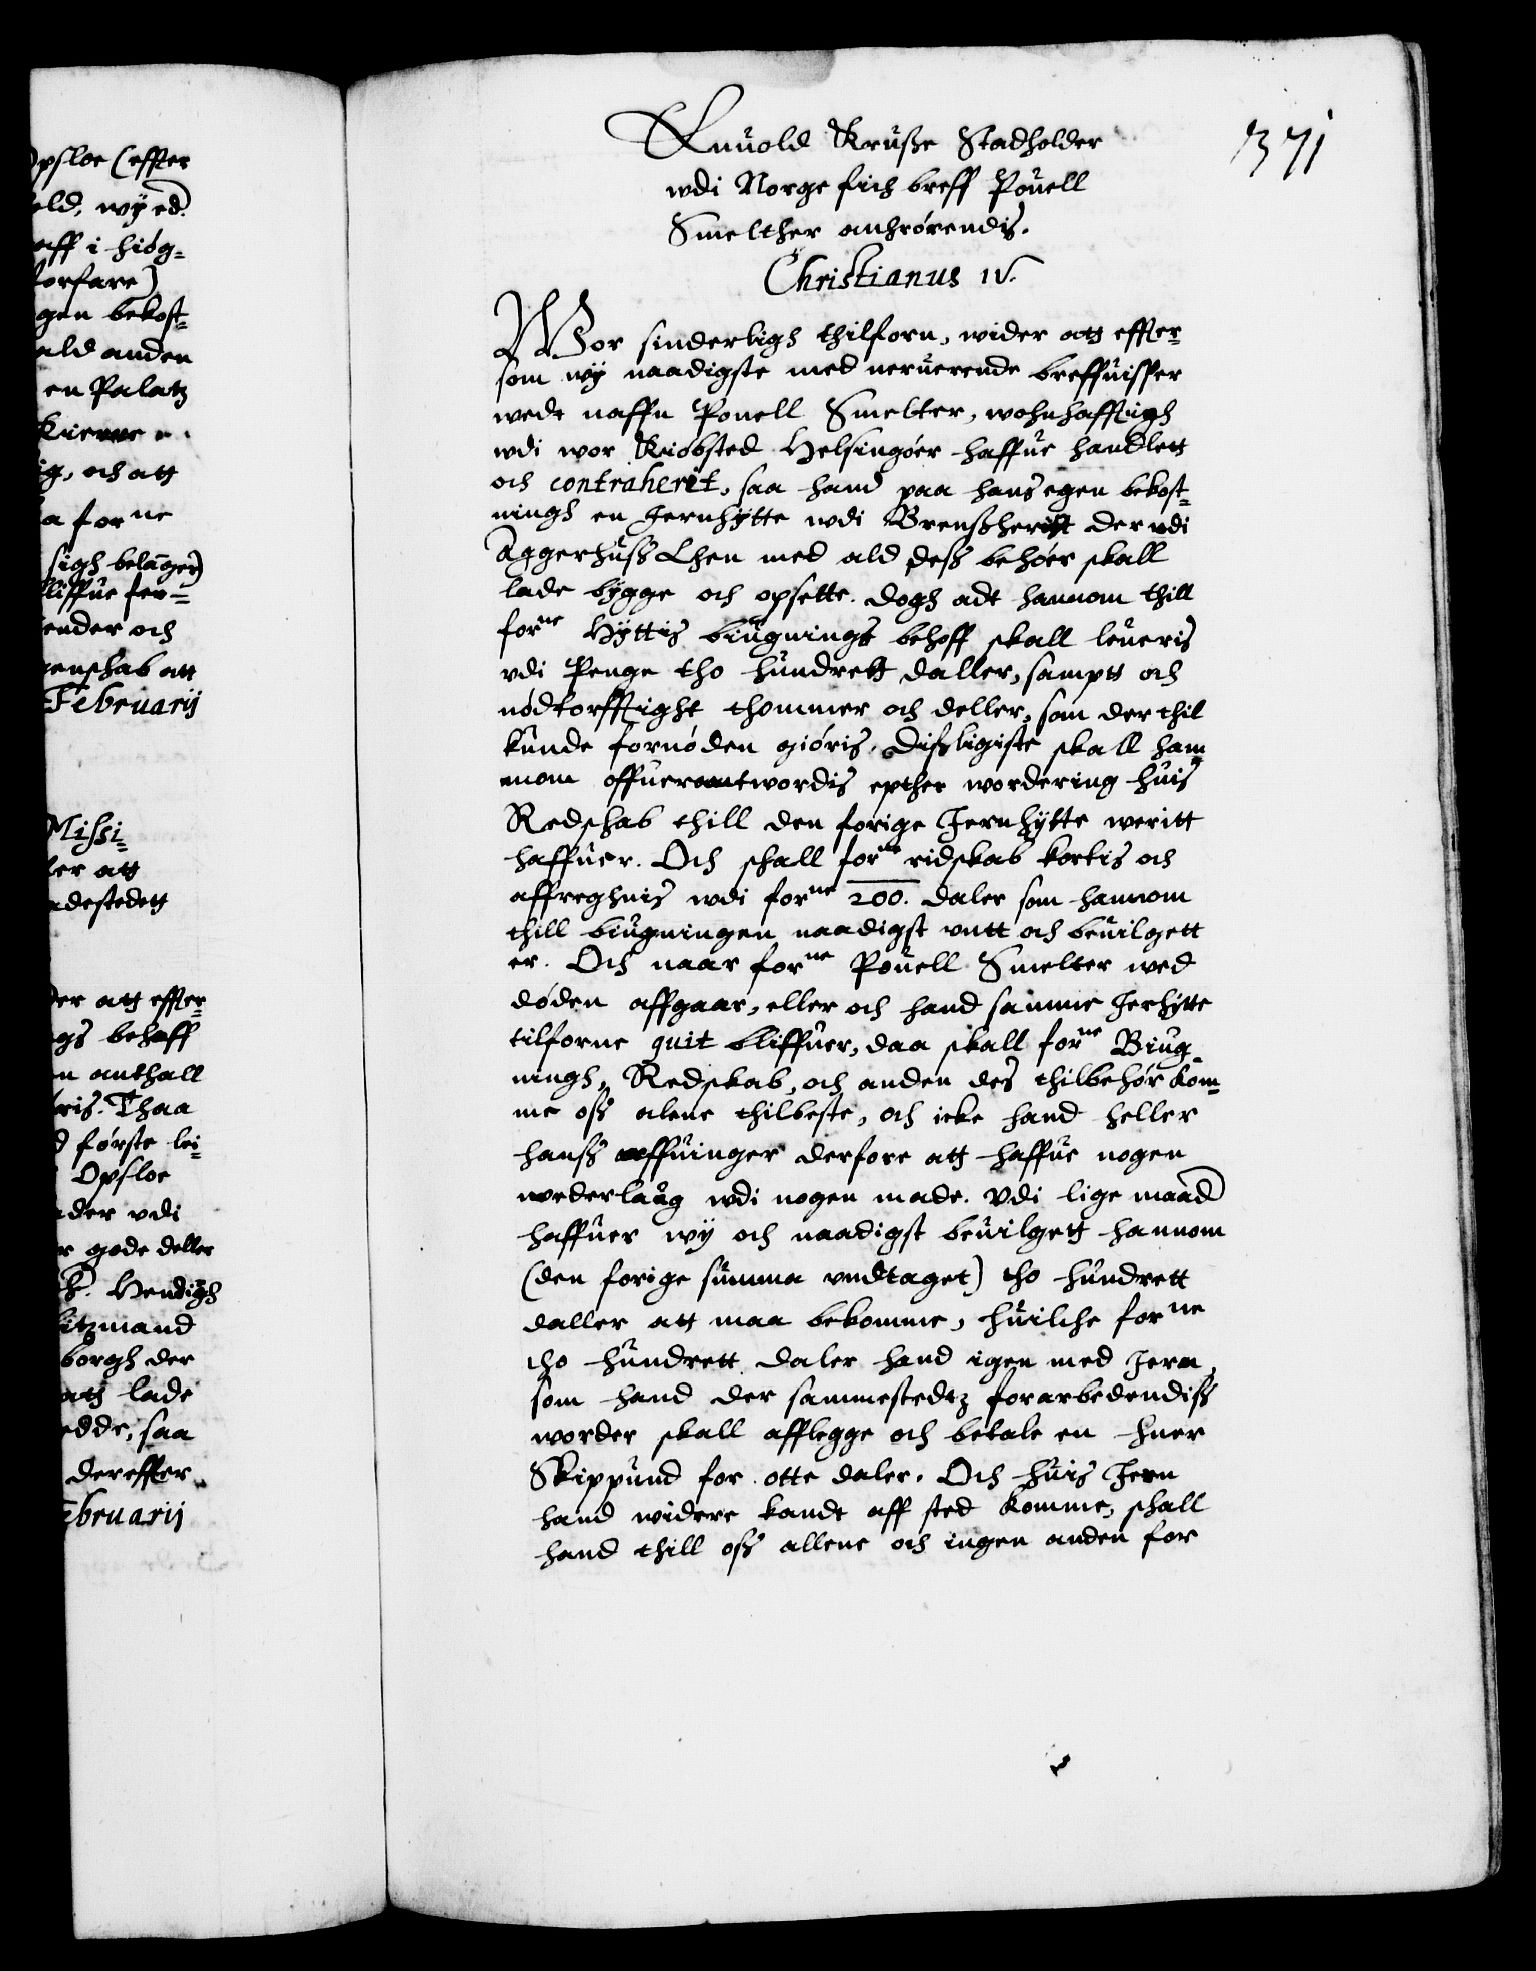 opsloe (effter
old, wÿ ed.
aff i hiøg=
forfare)
gen bekost=
ald anden
en Palatz
ig, och att
a forne
sigh belanger)
bliffue for=
ender och
genschab att
Februarij
Missi=
er att
adestedett
der att effter=
gs behoff
n anthall
øris. Thaa
d første lei=
Opsloe
der vdi
r gode deller
k. Hendigh
borgh der
att lade
edde, saa
dereffter
Februarij
371
Enuold Kruße Stadholder
wdi Norge fich breff Pouell
Smelther anhrørendis.
Christianus IV.
Wor sinderligh thilforn, wider att effter=
som wÿ naadigste med neruerende breffuisser
wedt naffn Pouell Smelter, wohnhafftigh
wdi wor Kiøbsted Helsingøer haffue handlett
och contraherit, saa hand paa hans egen bekost=
ningh en Jernhÿtte wdi Brenßherit der wdi
Aggerhuß Lhen med ald deß behøer skall
lade bÿgge och opsette. dogh adt hannom thill
forne Hÿttis biugnings behoff skall leueris
vdi Penge tho hundrett daller, sampt och
nødtorfftight thommer och deller, som der thil
kunde fornøden giøris, dißligiste skall han=
nom offuerantwordis epther wordering huis
Redschab thill den forige Jernhÿtte weritt
haffuer. Och schall forne ridskab kortis och
affreghnis wdi forne 200. daler som hannom
thill biugningen naadigst vntt och beuilgett
er. Och naar forne Pouell Smelter wed
døden affgaar, eller och hand samme Jerhÿtte
tilforne quit bliffuer, daa skall forne Biug=
ningh, Redskab, och anden des thilbehør kom=
me oß alene thilbeste, och icke hand heller
hanß arffuinger derfore att haffue nogen
wederlaug wdi nogen made. Vdi lige maad
haffuer wÿ och naadigst beuilgett hannom
(den forige summa vndtaget) tho hundrett
daller att maa bekomme, huilche forne
tho hundrett daler hand igen med Jern,
som hand der sammestedtz forarbedendiß
worder skall afflegge och betale en huer
Skippund for otte daler. Och huis Jern
hand widere kandt aff sted komme, schall
hand thill oß allene och ingen anden for